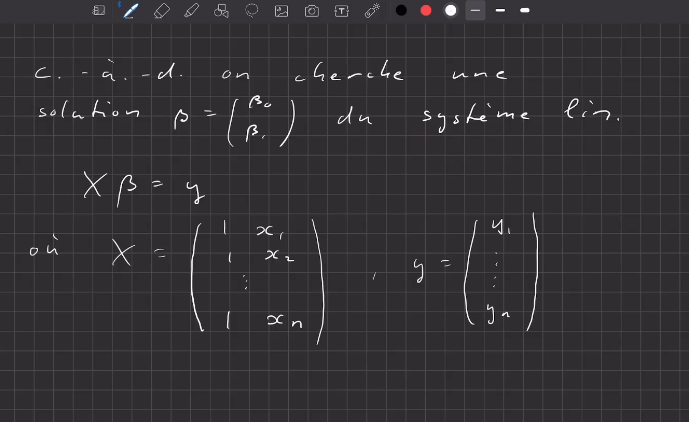 c.-à.-d. on cherche une
solution β = (β₀ β₁) du système lin.
Xβ = y
où X = (1 x₁ 1 x₂ ⋮ 1 xₙ), y = (y₁ ⋮ yₙ)